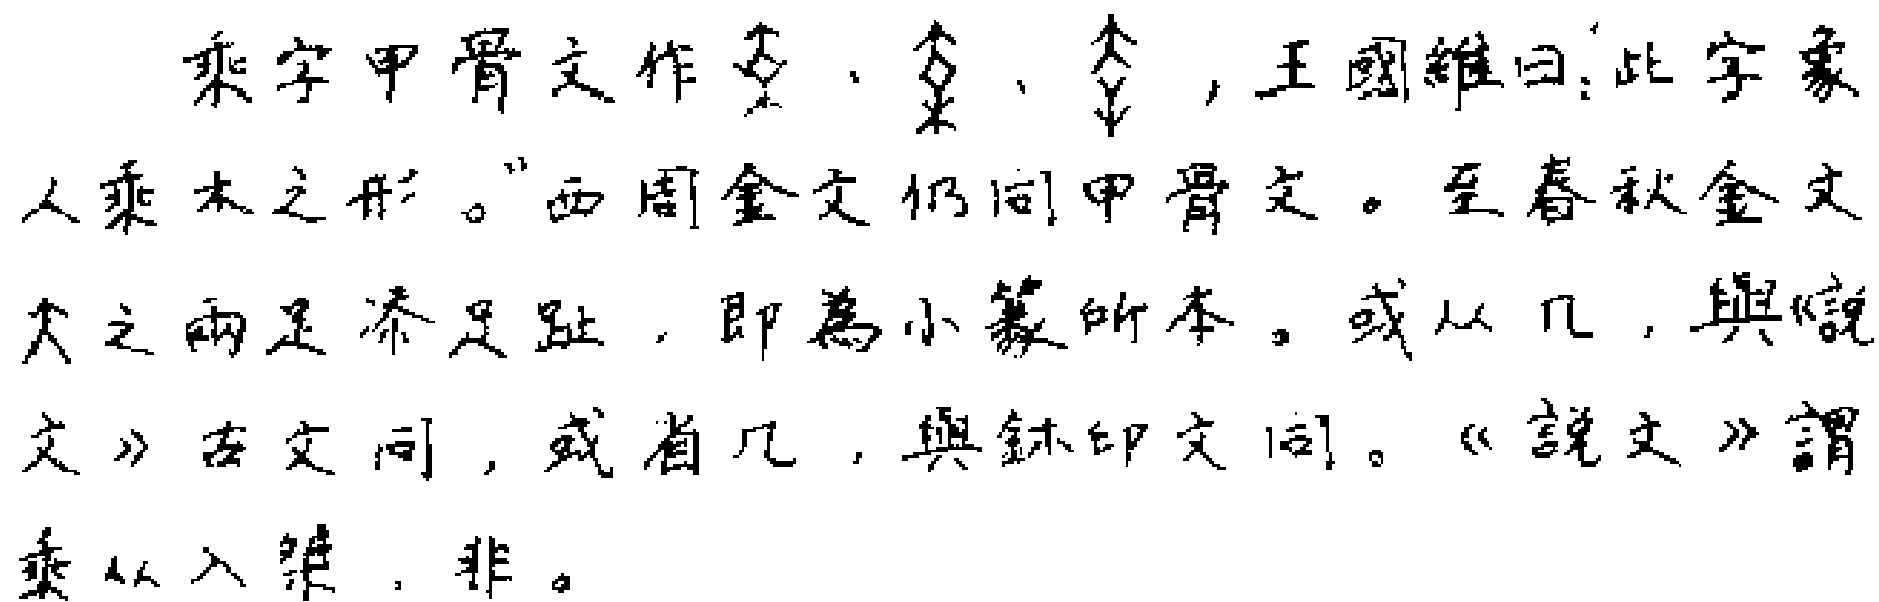 乘字甲骨文作、、,王國維曰:“此字象
人乘木之形。”西周金文仍同甲骨文。至春秋金文
大之兩足添足趾,即為小篆所本。或从几,與《說
文》古文同,或省几,與鉥印文同。《說文》謂
乘从入桀,非。